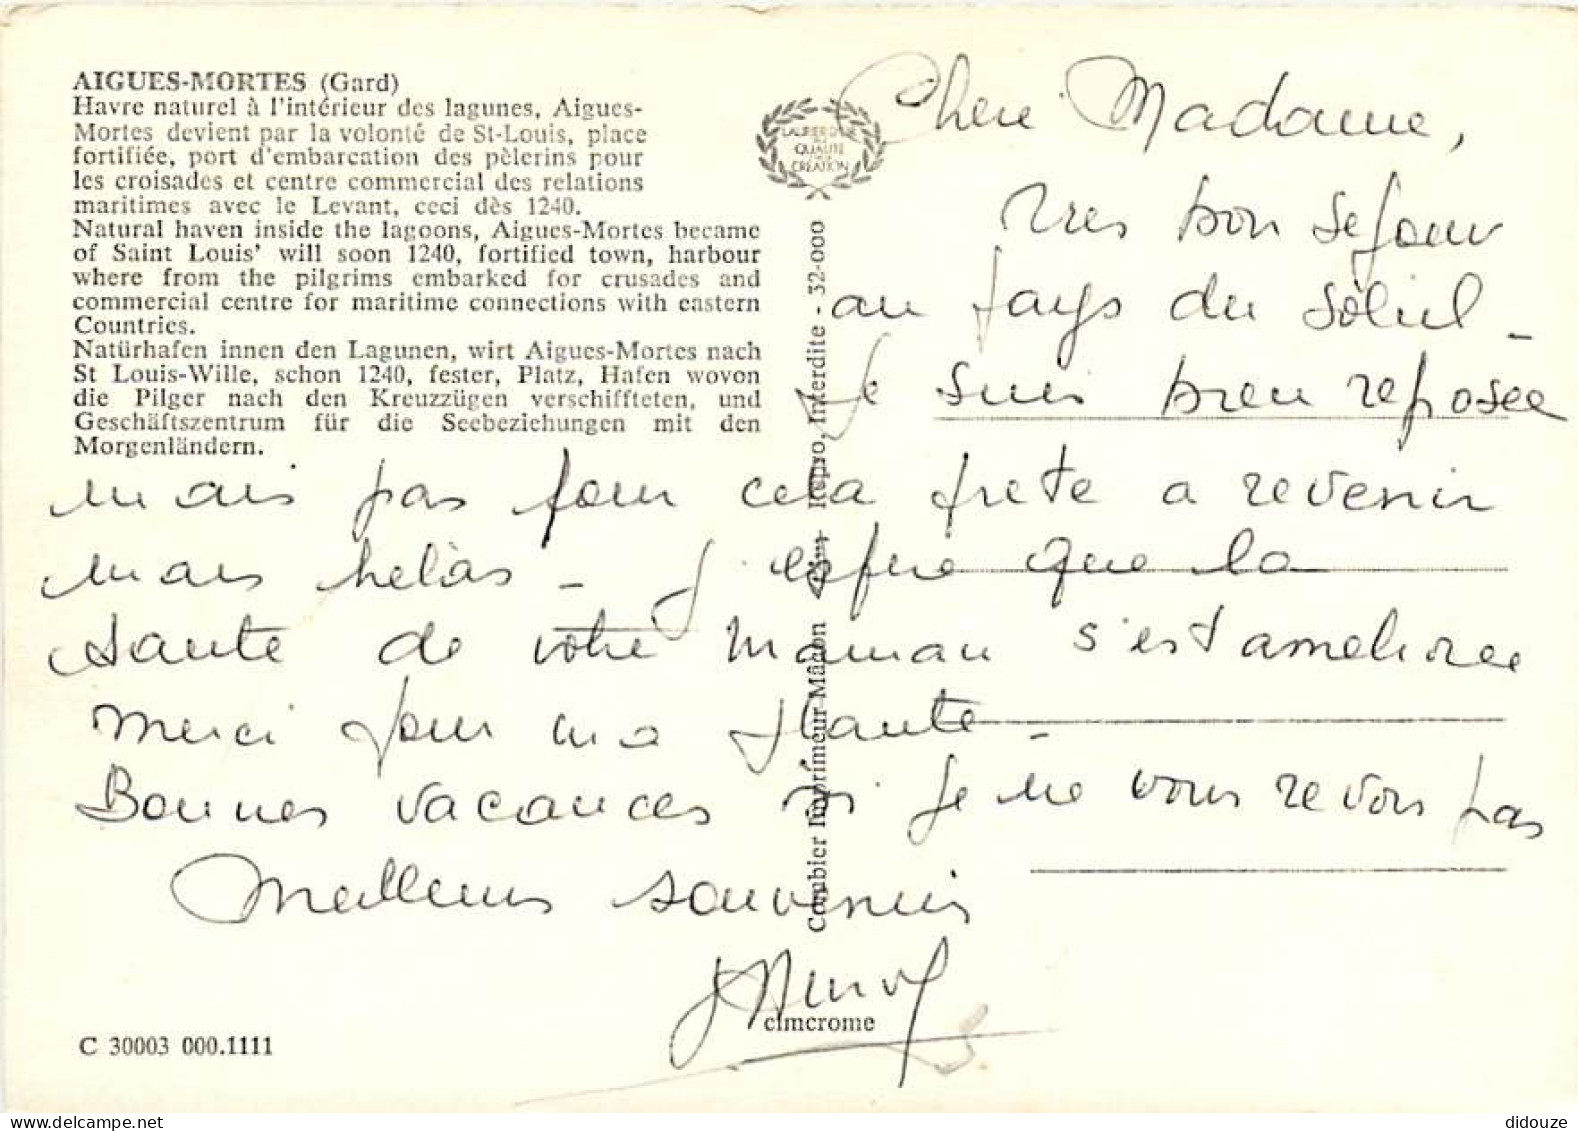 AIGUES-MORTES (Gard)
Havre naturel à l'intérieur des lagunes, Aigues-
Mortes devient par la volonté de St-Louis, place
fortifiée, port d'embarcation des pèlerins pour
les croisades et centre commercial des relations
maritimes avec le Levant, ceci dès 1240.
Natural haven inside the lagoons, Aigues-Mortes became
of Saint Louis' will soon 1240, fortified town, harbour
where from the pilgrims embarked for crusades and
commercial centre for maritime connections with eastern
Countries.
Natürhafen innen den Lagunen, wirt Aigues-Mortes nach
St Louis-Wille, schon 1240, fester, Platz, Hafen wovon
die Pilger nach den Kreuzzügen verschiffteten, und
Geschäftszentrum für die Seebeziehungen mit den
Morgenländern.
LAURIER D'OR
DE LA
QUALITÉ
CRÉATION
Combier Imprimeur Mâcon
Repro, Interdite - 32-000
Chere Madame,
Tres bon sejour
au pays du soleil -
Je suis bien reposée
mais pas pour cela prete a revenir
mais helas - J'espere que la
sante de votre maman s'est amelioree
merci pour ma plante -
Bonnes vacances si je ne vous revois pas
Meilleurs souvenirs
cimcrome
C 30003 000.1111
didouze